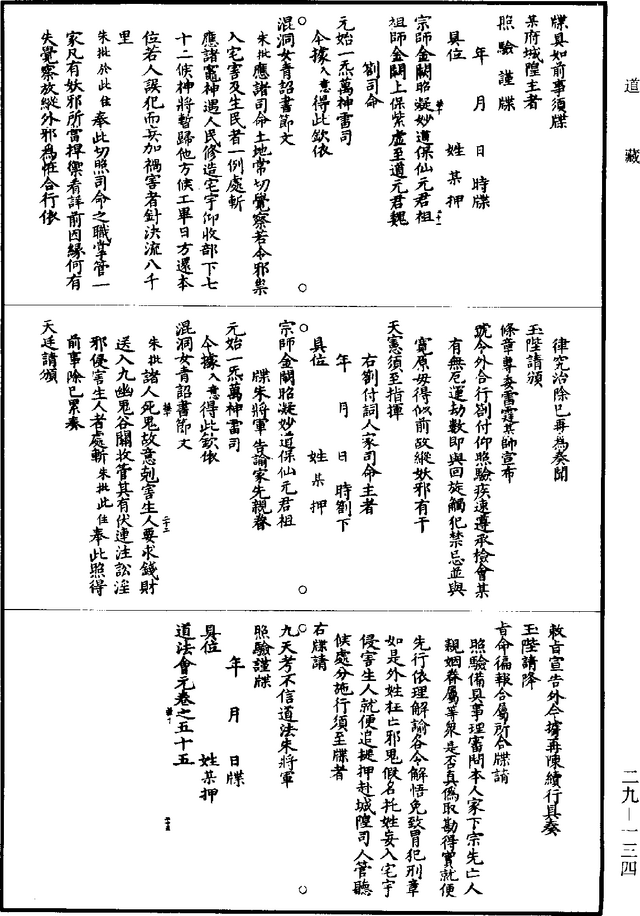 道藏
牒具如前事須牒
某府城隍主者
照驗謹牒
年月日時牒
具位姓某押
宗師金闕昭凝妙道保仙元君祖
祖師金闕上保紫虛至道元君魏
劄司命
元始一炁萬神雷司
今據入意得此欽依
混洞女青詔書節文
朱批應諸司命土地常切覺察若令邪祟
入宅害及生民者一例處斬
應諸竈神遇人民修造宅宇仰收部下七
十二候神將暫歸他方候工畢日方還本
位若人誤犯而妄加禍害者針決流八千
里
朱批於此住奉此切照司命之職掌管一
家凡有妖邪所當捍禦看詳前因緣何有
失覺察放縱外邪為恠合行依
律究治除已再為奏聞
玉陛請頒
條章尊奏雷霆某師宣布
號令外合行劄付仰照驗疾速遵承檢會某
有無厄運劫數即與回旋觸犯禁忌並與
寬原毋得似前故縱妖邪有干
天憲須至指揮
右劄付詞人家司命主者
年月日時劄下
具位姓某押
宗師金闕昭凝妙道保仙元君祖
牒朱將軍告諭家先親眷
元始一炁萬神雷司
今據入意得此欽依
混洞女青詔書節文
朱批諸人死鬼故意剋害生人要求錢財
送入九幽鬼谷關收管其有伏連注訟淫
邪侵害生人者處斬朱批此住奉此照得
前事除已累奏
天廷請頒
敕旨宣告外今據再陳續行具奏
玉陛請降
旨命徧報合屬所合牒請
照驗備具事理審問本人家下宗先亡人
親姻眷屬等衆是否真偽取勘得實就便
先行依理解諭各令解悟免致冒犯刑章
如是外姓枉亡邪鬼假名托姓妄入宅宇
侵害生人就便追捉押赴城隍司入管聽
候處分施行須至牒者
右牒請
九天考不信道法朱將軍
照驗謹牒
年月日牒
具位姓某押
道法會元卷之五十五
二九—一三四